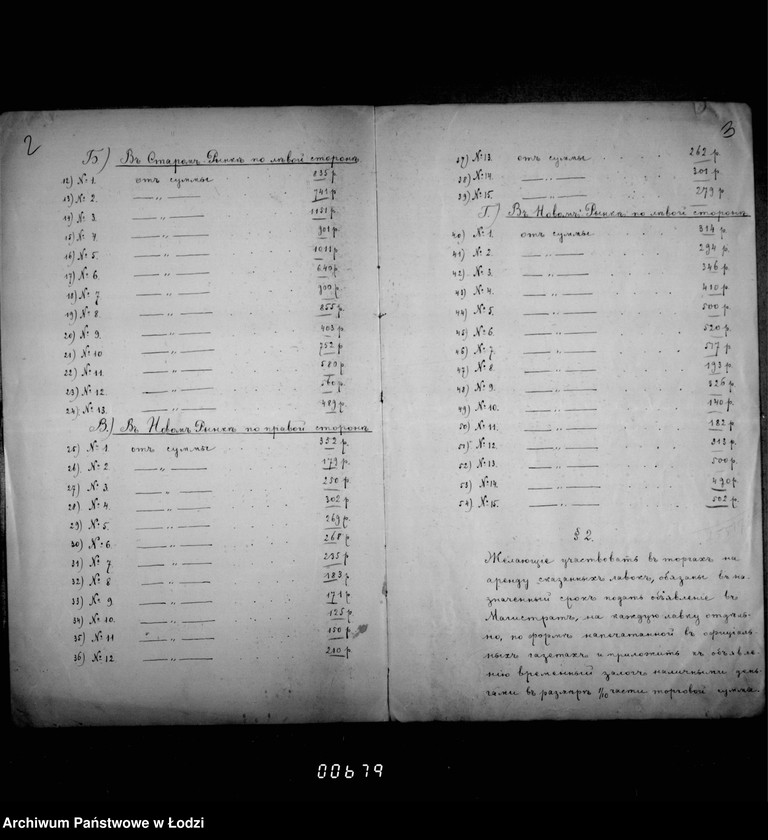 2
Б) Въ Старомъ Рынкѣ по лѣвой сторонѣ
12) № 1. отъ суммы 835 р
13) № 2. — „ — 741 р
14) № 3. — „ — 1131 р
15) № 4. — „ — 901 р
16) № 5. — „ — 1011 р
17) № 6. — „ — 640 р
18) № 7 — „ — 900 р
19) № 8. — „ — 855 р
20) № 9. — „ — 403 р
21) № 10 — „ — 752 р
22) № 11. — „ — 580 р
23) № 12. — „ — 560 р
24) № 13. — „ — 489 р
В.) Въ Новомъ Рынкѣ по правой сторонѣ
25) № 1. отъ суммы 352 р.
26) № 2. — „ — 179 р
27) № 3. — „ — 250 р
28) № 4. — „ — 302 р
29) № 5. — „ — 269 р
30) № 6. — „ — 268 р
31) № 7. — „ — 235 р
32) № 8 — „ — 183 р
33) № 9 — „ — 171 р
34) № 10. — „ — 125 р
35) № 11 — „ — 150 р
36) № 12. — „ — 210 р
3
37) № 13. отъ суммы 262 р
38) № 14. 301 р
39) № 15. 279 р
Г.) Въ Новомъ Рынкѣ по лѣвой сторонѣ
40) № 1. отъ суммы 314 р
41) № 2. — „ — 294 р.
42) № 3. — „ — 346 р
43) № 4. — „ — 410 р
44) № 5. — „ — 500 р
45) № 6. — „ — 520 р
46) № 7. — „ — 517 р
47) № 8. — „ — 193 р
48) № 9. — „ — 326 р
49) № 10. — „ — 140 р
50) № 11. — „ — 182 р
51) № 12. — „ — 313 р
52) № 13. — „ — 500 р.
53) № 14. — „ — 490 р
54) № 15. — „ — 502 р.
§ 2.
Желающіе участвовать въ торгахъ на
аренду сказанныхъ лавокъ, обязаны въ на-
значенный срокъ подать объявленіе въ
Магистратъ, на каждую лавку отдѣль-
но, по формѣ напечатанной въ оффиціаль-
ныхъ газетахъ и приложить къ объявле-
нію временный залогъ наличными день-
гами въ размѣрѣ 1/10 части торговой суммы.
00679
Archiwum Państwowe w Łodzi